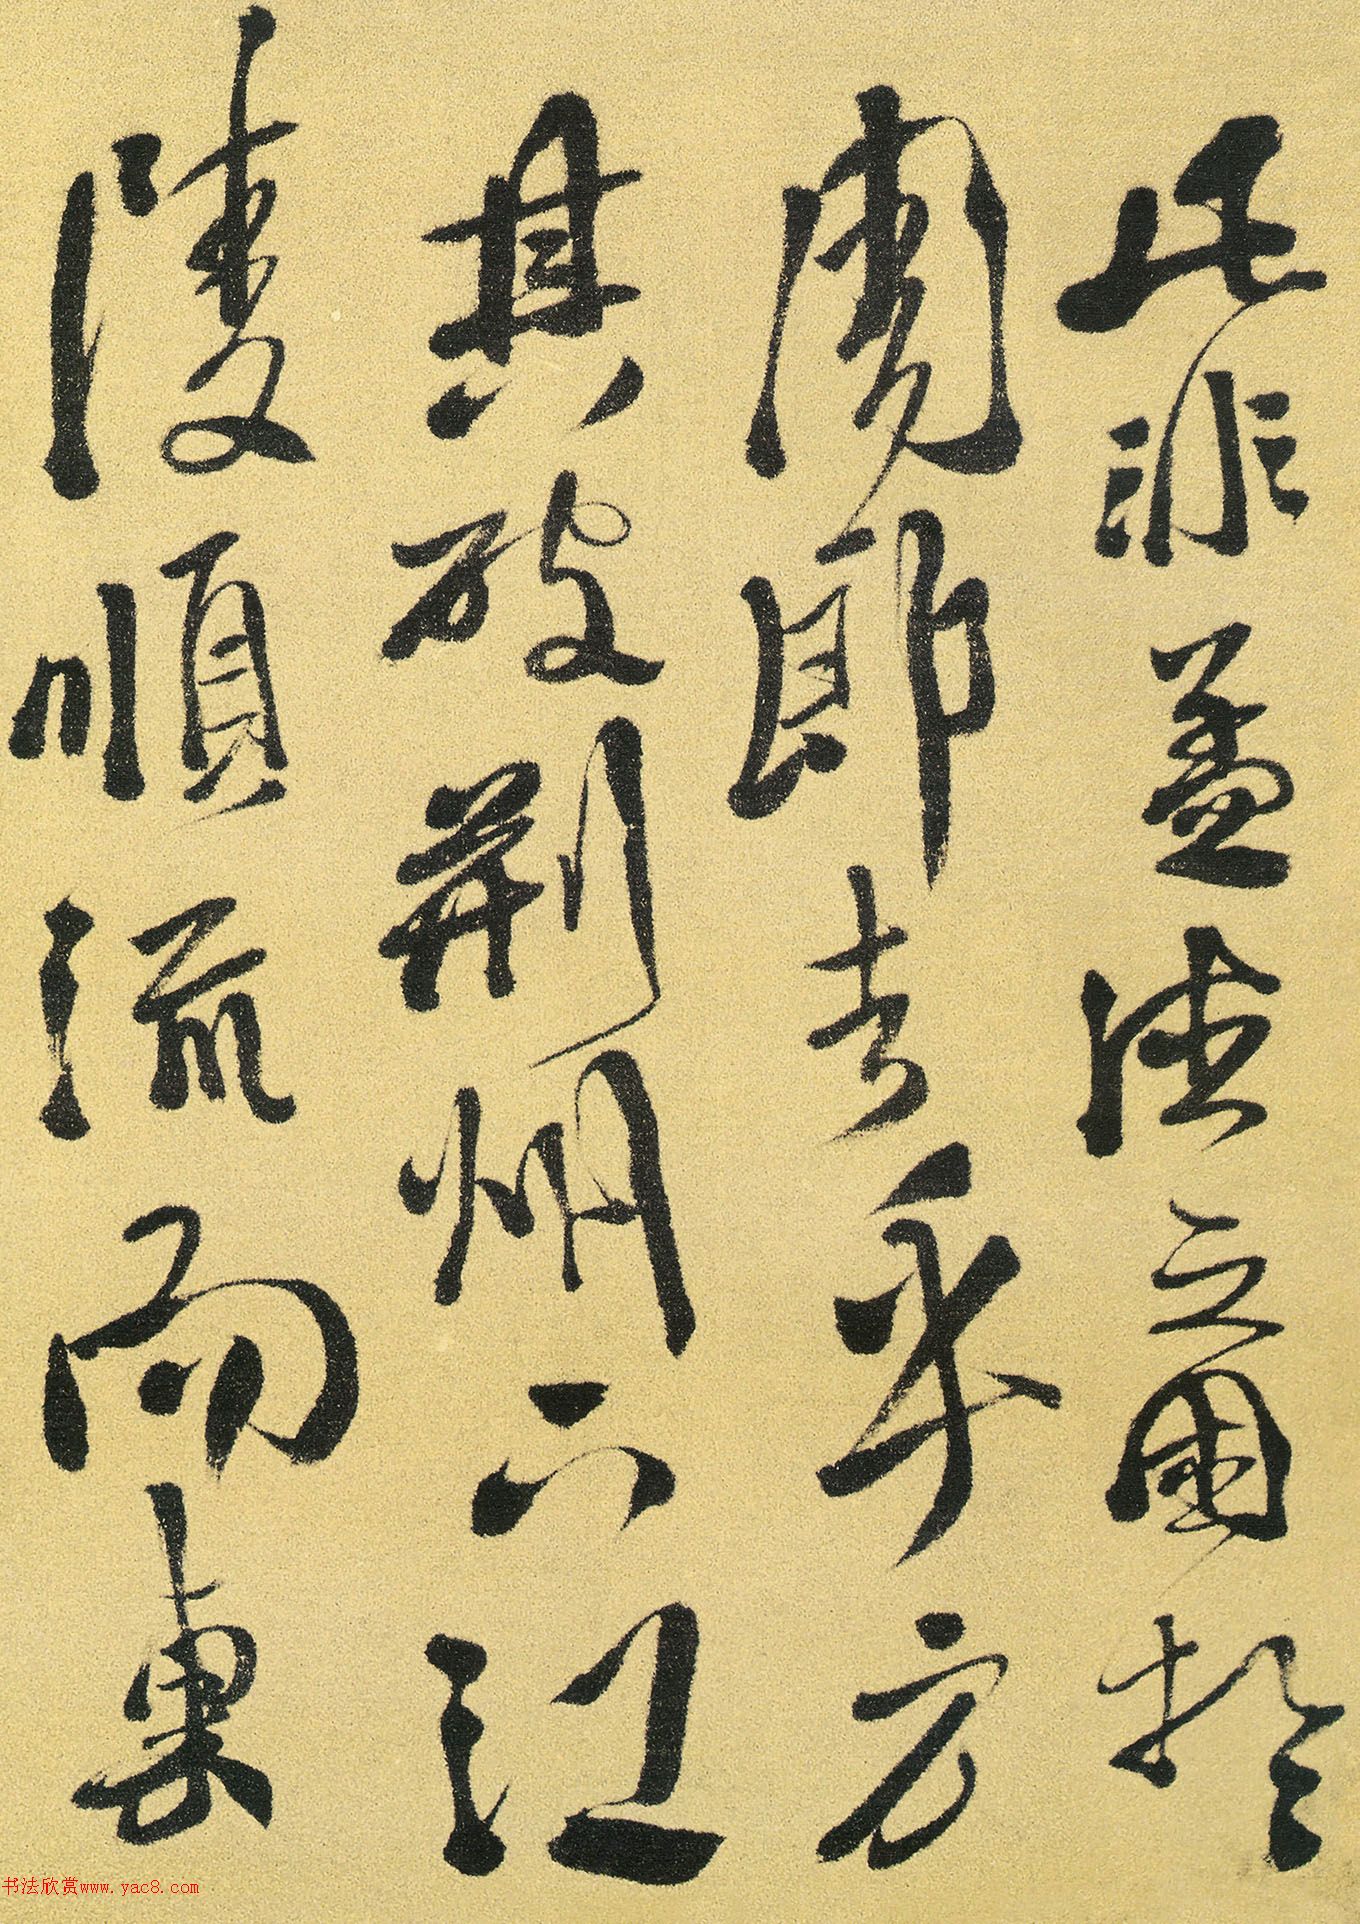 此非孟德之困於
周郎者乎方
其破荊州下江
陵順流而東
书法欣赏www.yac8.com